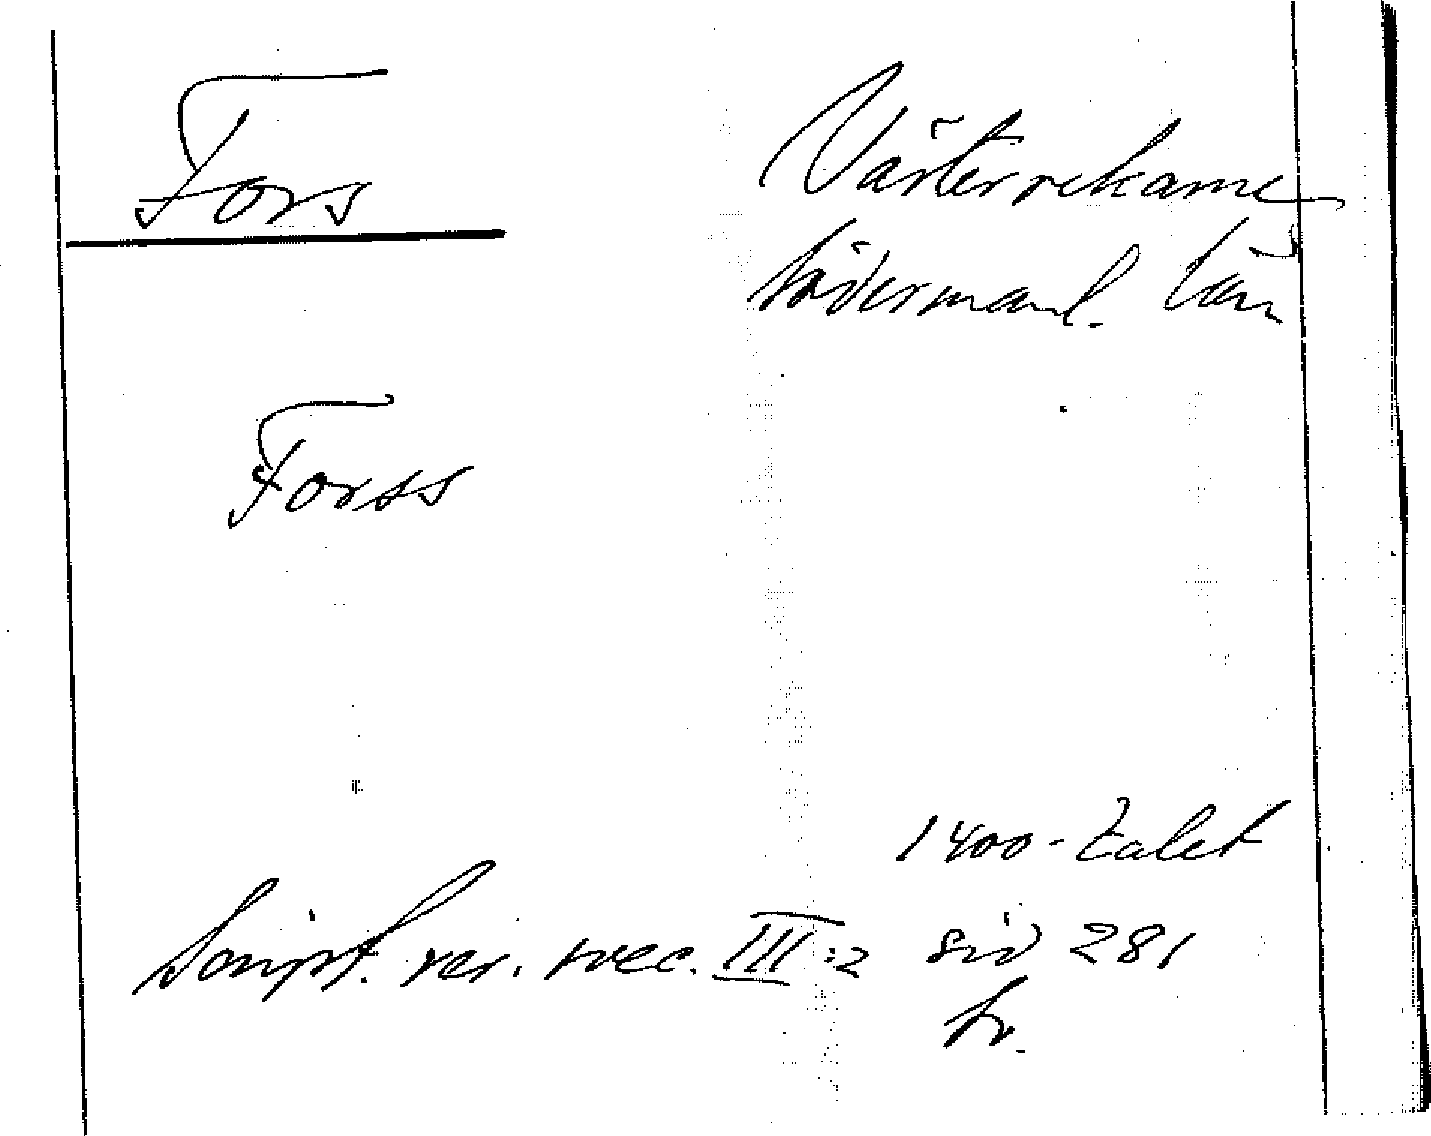 Fors
Västerrekarne
Södermanl. län
Forss
1400-talet
Script. rer. svec. III:2 sid 281
tr.